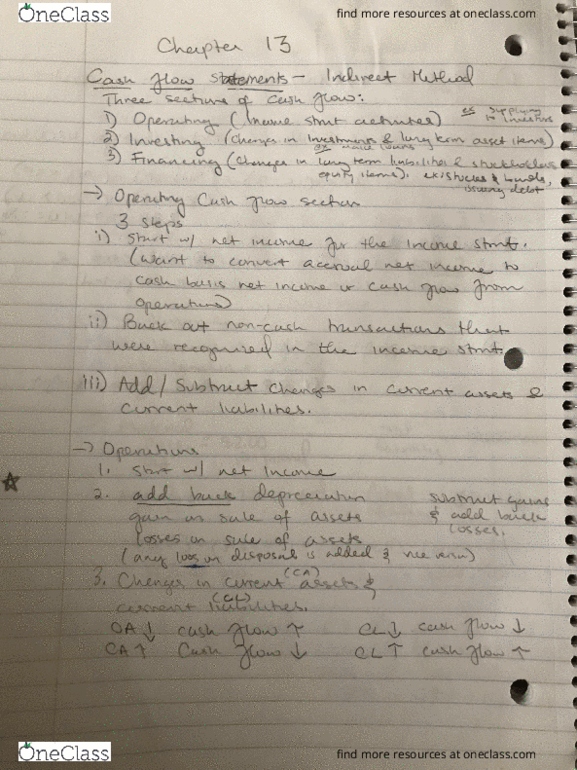 OneClass
find more resources at oneclass.com
Chapter 13
Cash flow statements - Indirect Method
Three sections of Cash flow:
1) Operating (Income stmt activities) ex supplying to investors
2) Investing (changes in Investments & long term asset items)
ex make loans
3) Financing (changes in long term liabilities & stockholders
equity items). ex: stocks & bonds,
issuing debt
→ Operating Cash flow section
3 steps
i) Start w/ net income for the income stmt.
(want to convert accrual net income to
cash basis net income or cash flow from
operations)
ii) Back out non-cash transactions that
were recognized in the income stmt
iii) Add / Subtract changes in current assets &
current liabilites.
→ Operations
1. start w/ net Income
2. add back depreciation
gain on sale of assets
losses on sale of assets
subtract gains
& add back
losses.
(any loss on disposal is added & vice versa)
3. Changes in current assets (CA) &
current liabilities. (CL)
CA ↓ cash flow ↑ CL ↓ cash flow ↓
CA ↑ Cash flow ↓ CL ↑ cash flow ↑
OneClass
find more resources at oneclass.com